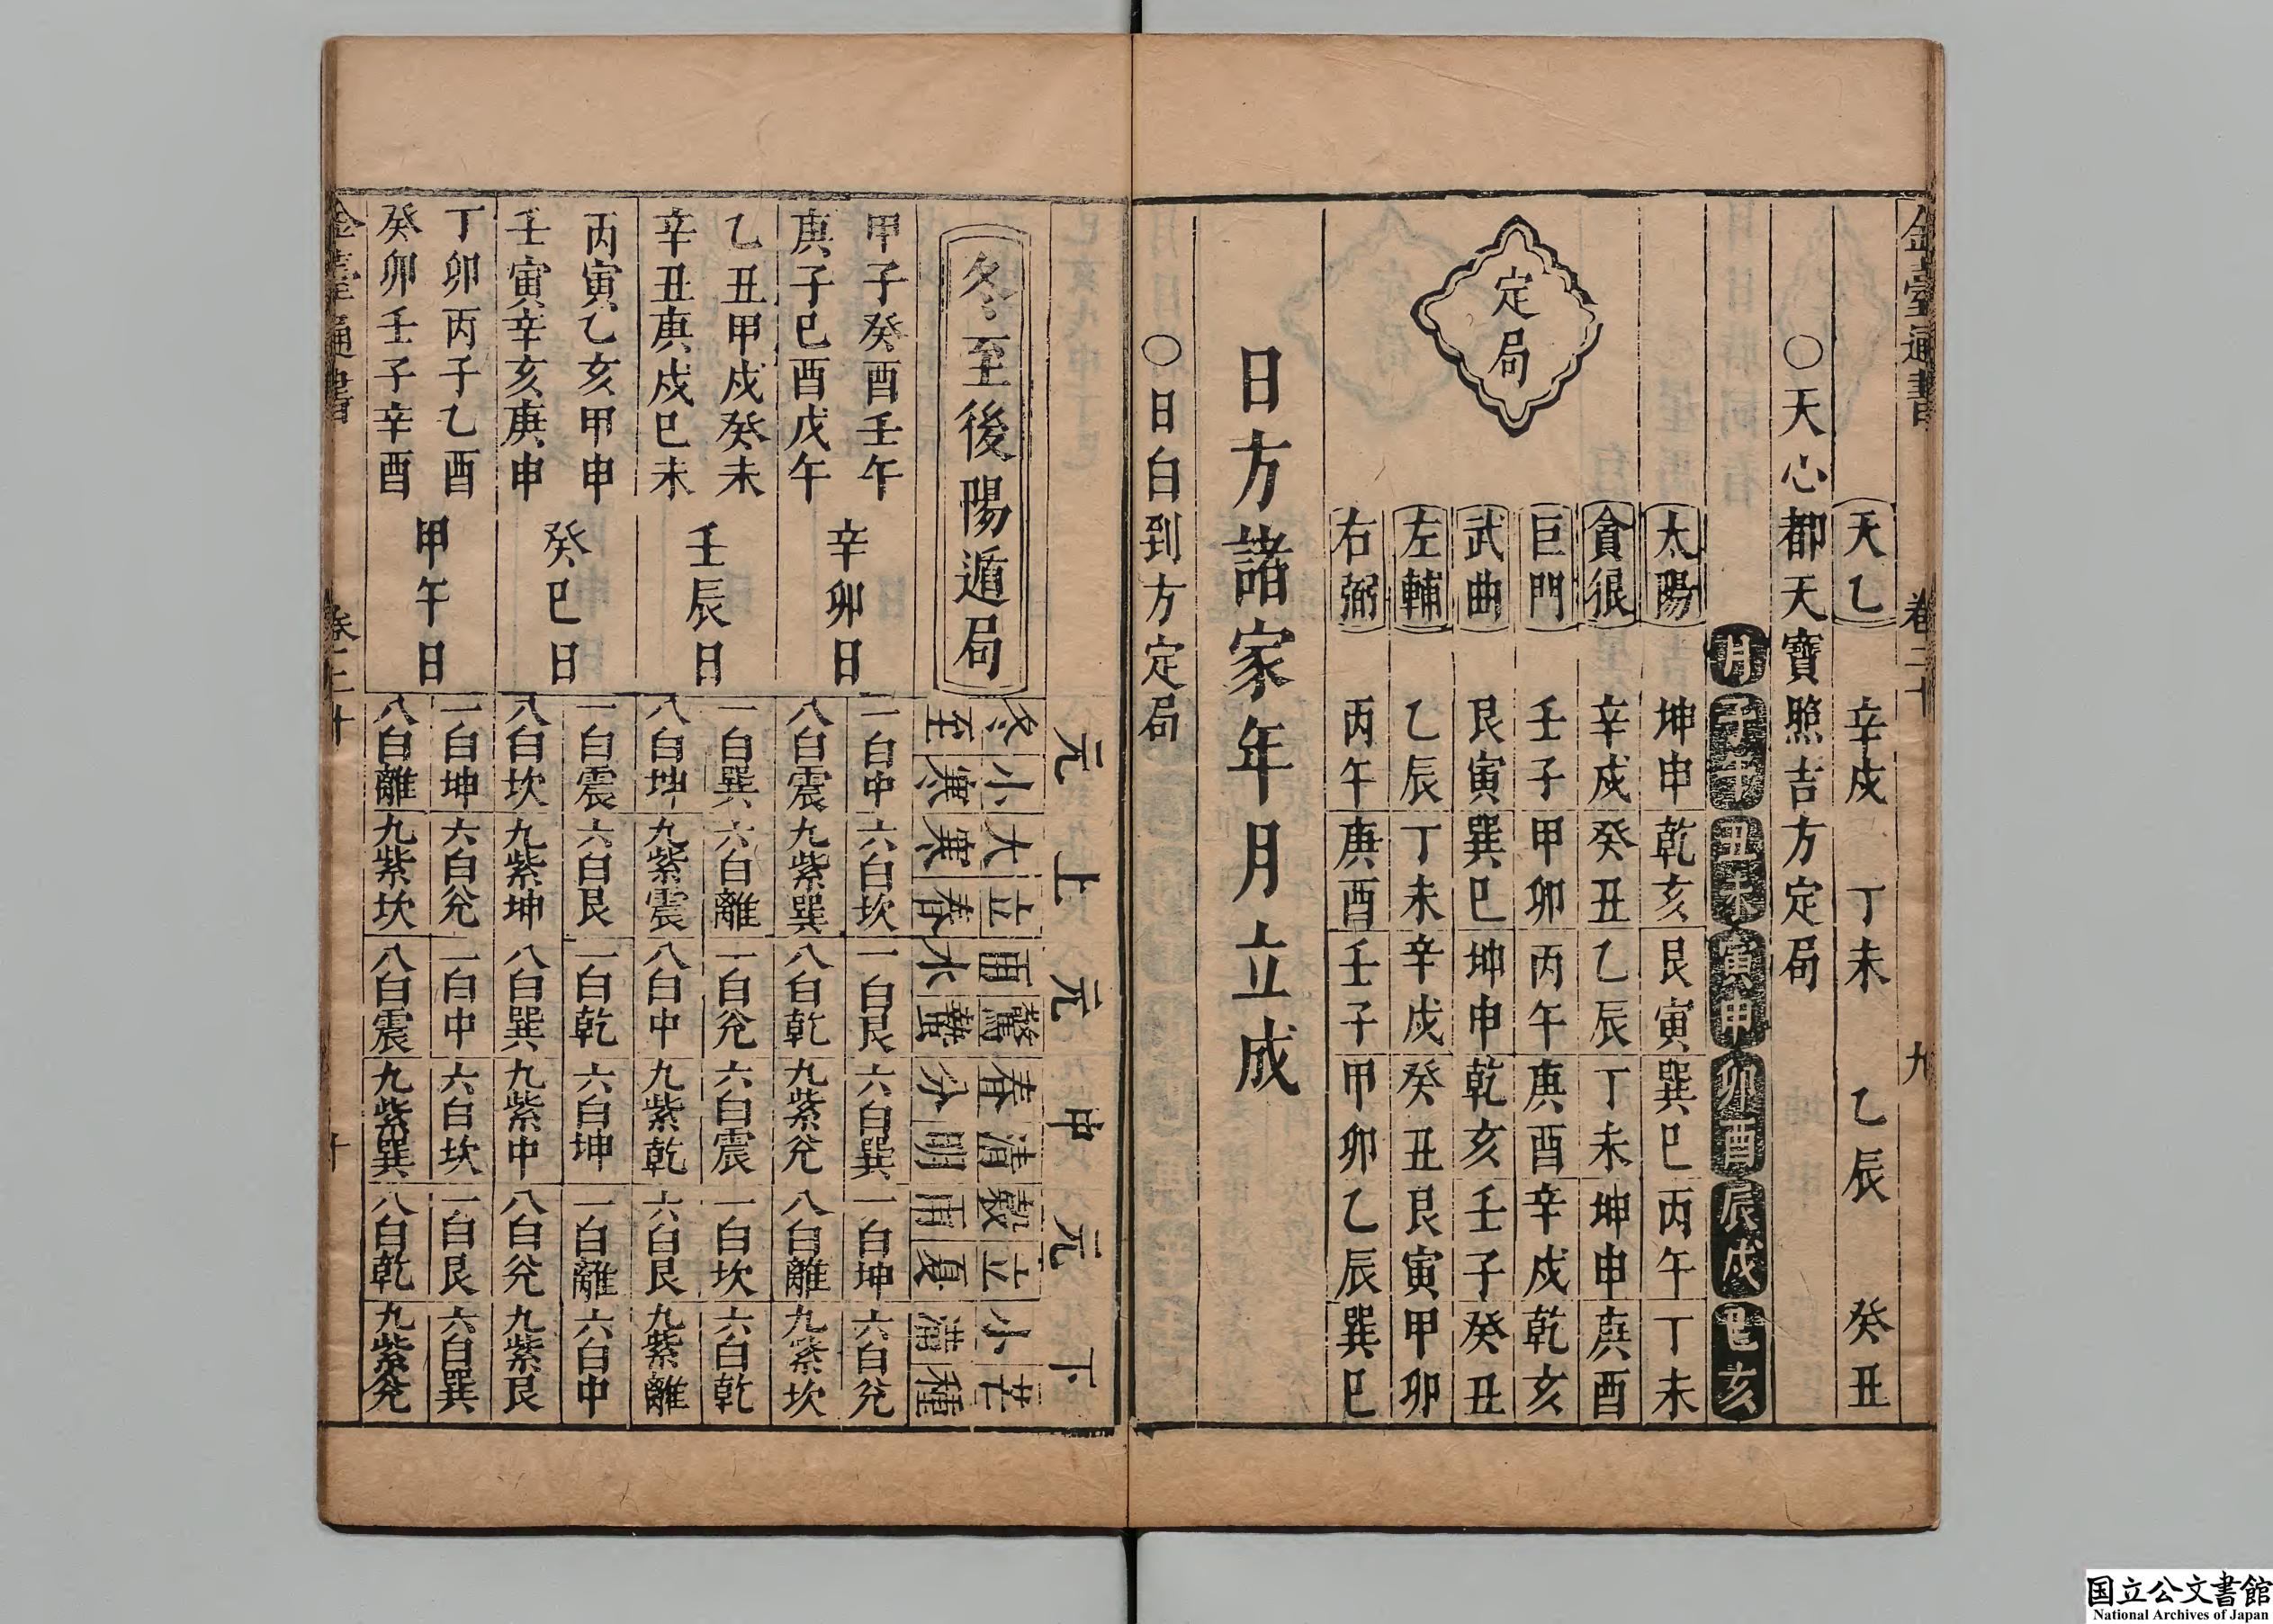 金臺通書 卷二十 九
天乙 辛戌 丁未 乙辰 癸丑
○天心都天寶照吉方定局
月 子午 丑未 寅申 卯酉 辰戌 巳亥
定局
太陽 坤申 乾亥 艮寅 巽巳 丙午 丁未
貪狼 辛戌 癸丑 乙辰 丁未 坤申 庚酉
巨門 壬子 甲卯 丙午 庚酉 辛戌 乾亥
武曲 艮寅 巽巳 坤申 乾亥 壬子 癸丑
左輔 乙辰 丁未 辛戌 癸丑 艮寅 甲卯
右弼 丙午 庚酉 壬子 甲卯 乙辰 巽巳
日方諸家年月立成
○日白到方定局
元 上 元 中 元 下
冬至後陽遁局
冬至 小寒 大寒 立春 雨水 驚蟄 春分 清明 穀雨 立夏 小滿 芒種
甲子癸酉壬午
庚子巳酉戊午
辛卯日
一白中 六白坎 一白艮 六白巽 一白坤 六白兊
八白震 九紫巽 八白乾 九紫兊 八白離 九紫坎
乙丑甲戌癸未
辛丑庚戌巳未
壬辰日
一白巽 六白離 一白兊 六白震 一白坎 六白乾
八白坤 九紫震 八白中 九紫乾 六白艮 九紫離
丙寅乙亥甲申
壬寅辛亥庚申
癸巳日
一白震 六白艮 一白乾 六白坤 一白離 六白中
八白坎 九紫坤 八白巽 九紫中 八白兊 九紫艮
丁卯丙子乙酉
癸卯壬子辛酉
甲午日
一白坤 六白兊 一白中 六白坎 一白艮 六白巽
八白離 九紫坎 八白震 九紫巽 八白乾 九紫兊
金臺通書 卷二十 十
国立公文書館
National Archives of Japan